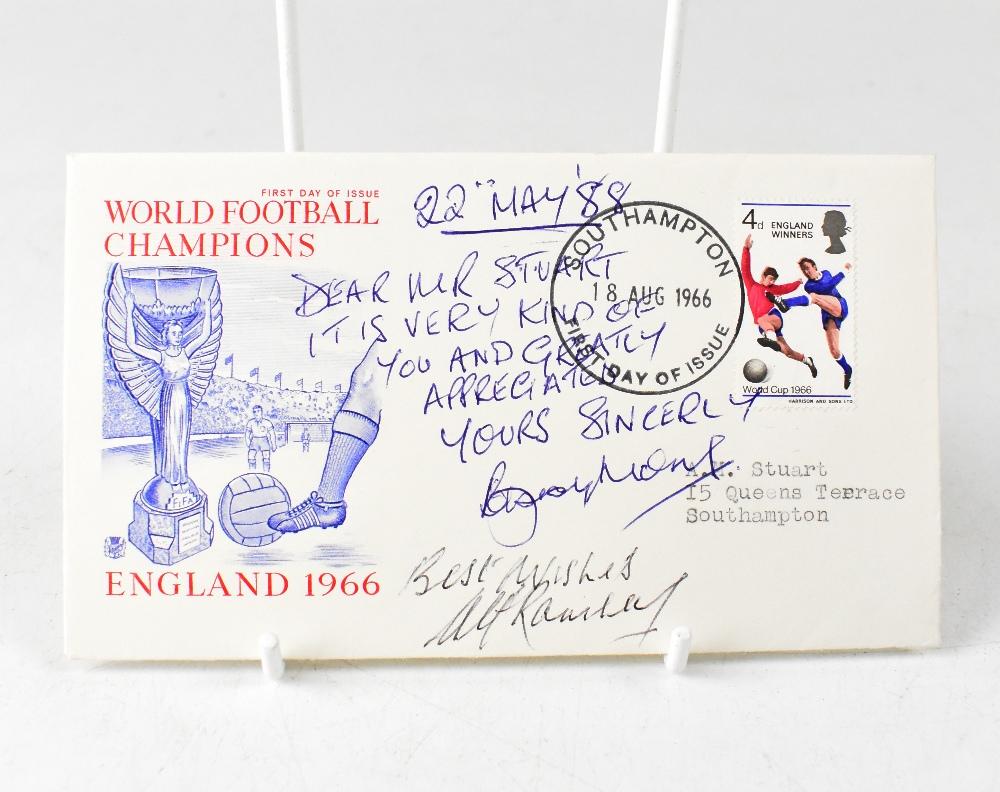 FIRST DAY OF ISSUE
WORLD FOOTBALL
CHAMPIONS
22nd MAY '88
DEAR MR STUART
IT IS VERY KIND OF
YOU AND GREATLY
APPRECIATED
YOURS SINCERLY
Best Wishes
Alf Ramsey
SOUTHAMPTON
18 AUG 1966
FIRST DAY OF ISSUE
4d ENGLAND
WINNERS
World Cup 1966
HARRISON AND SONS LTD
A.H. Stuart
15 Queens Terrace
Southampton
FIFA
ENGLAND 1966